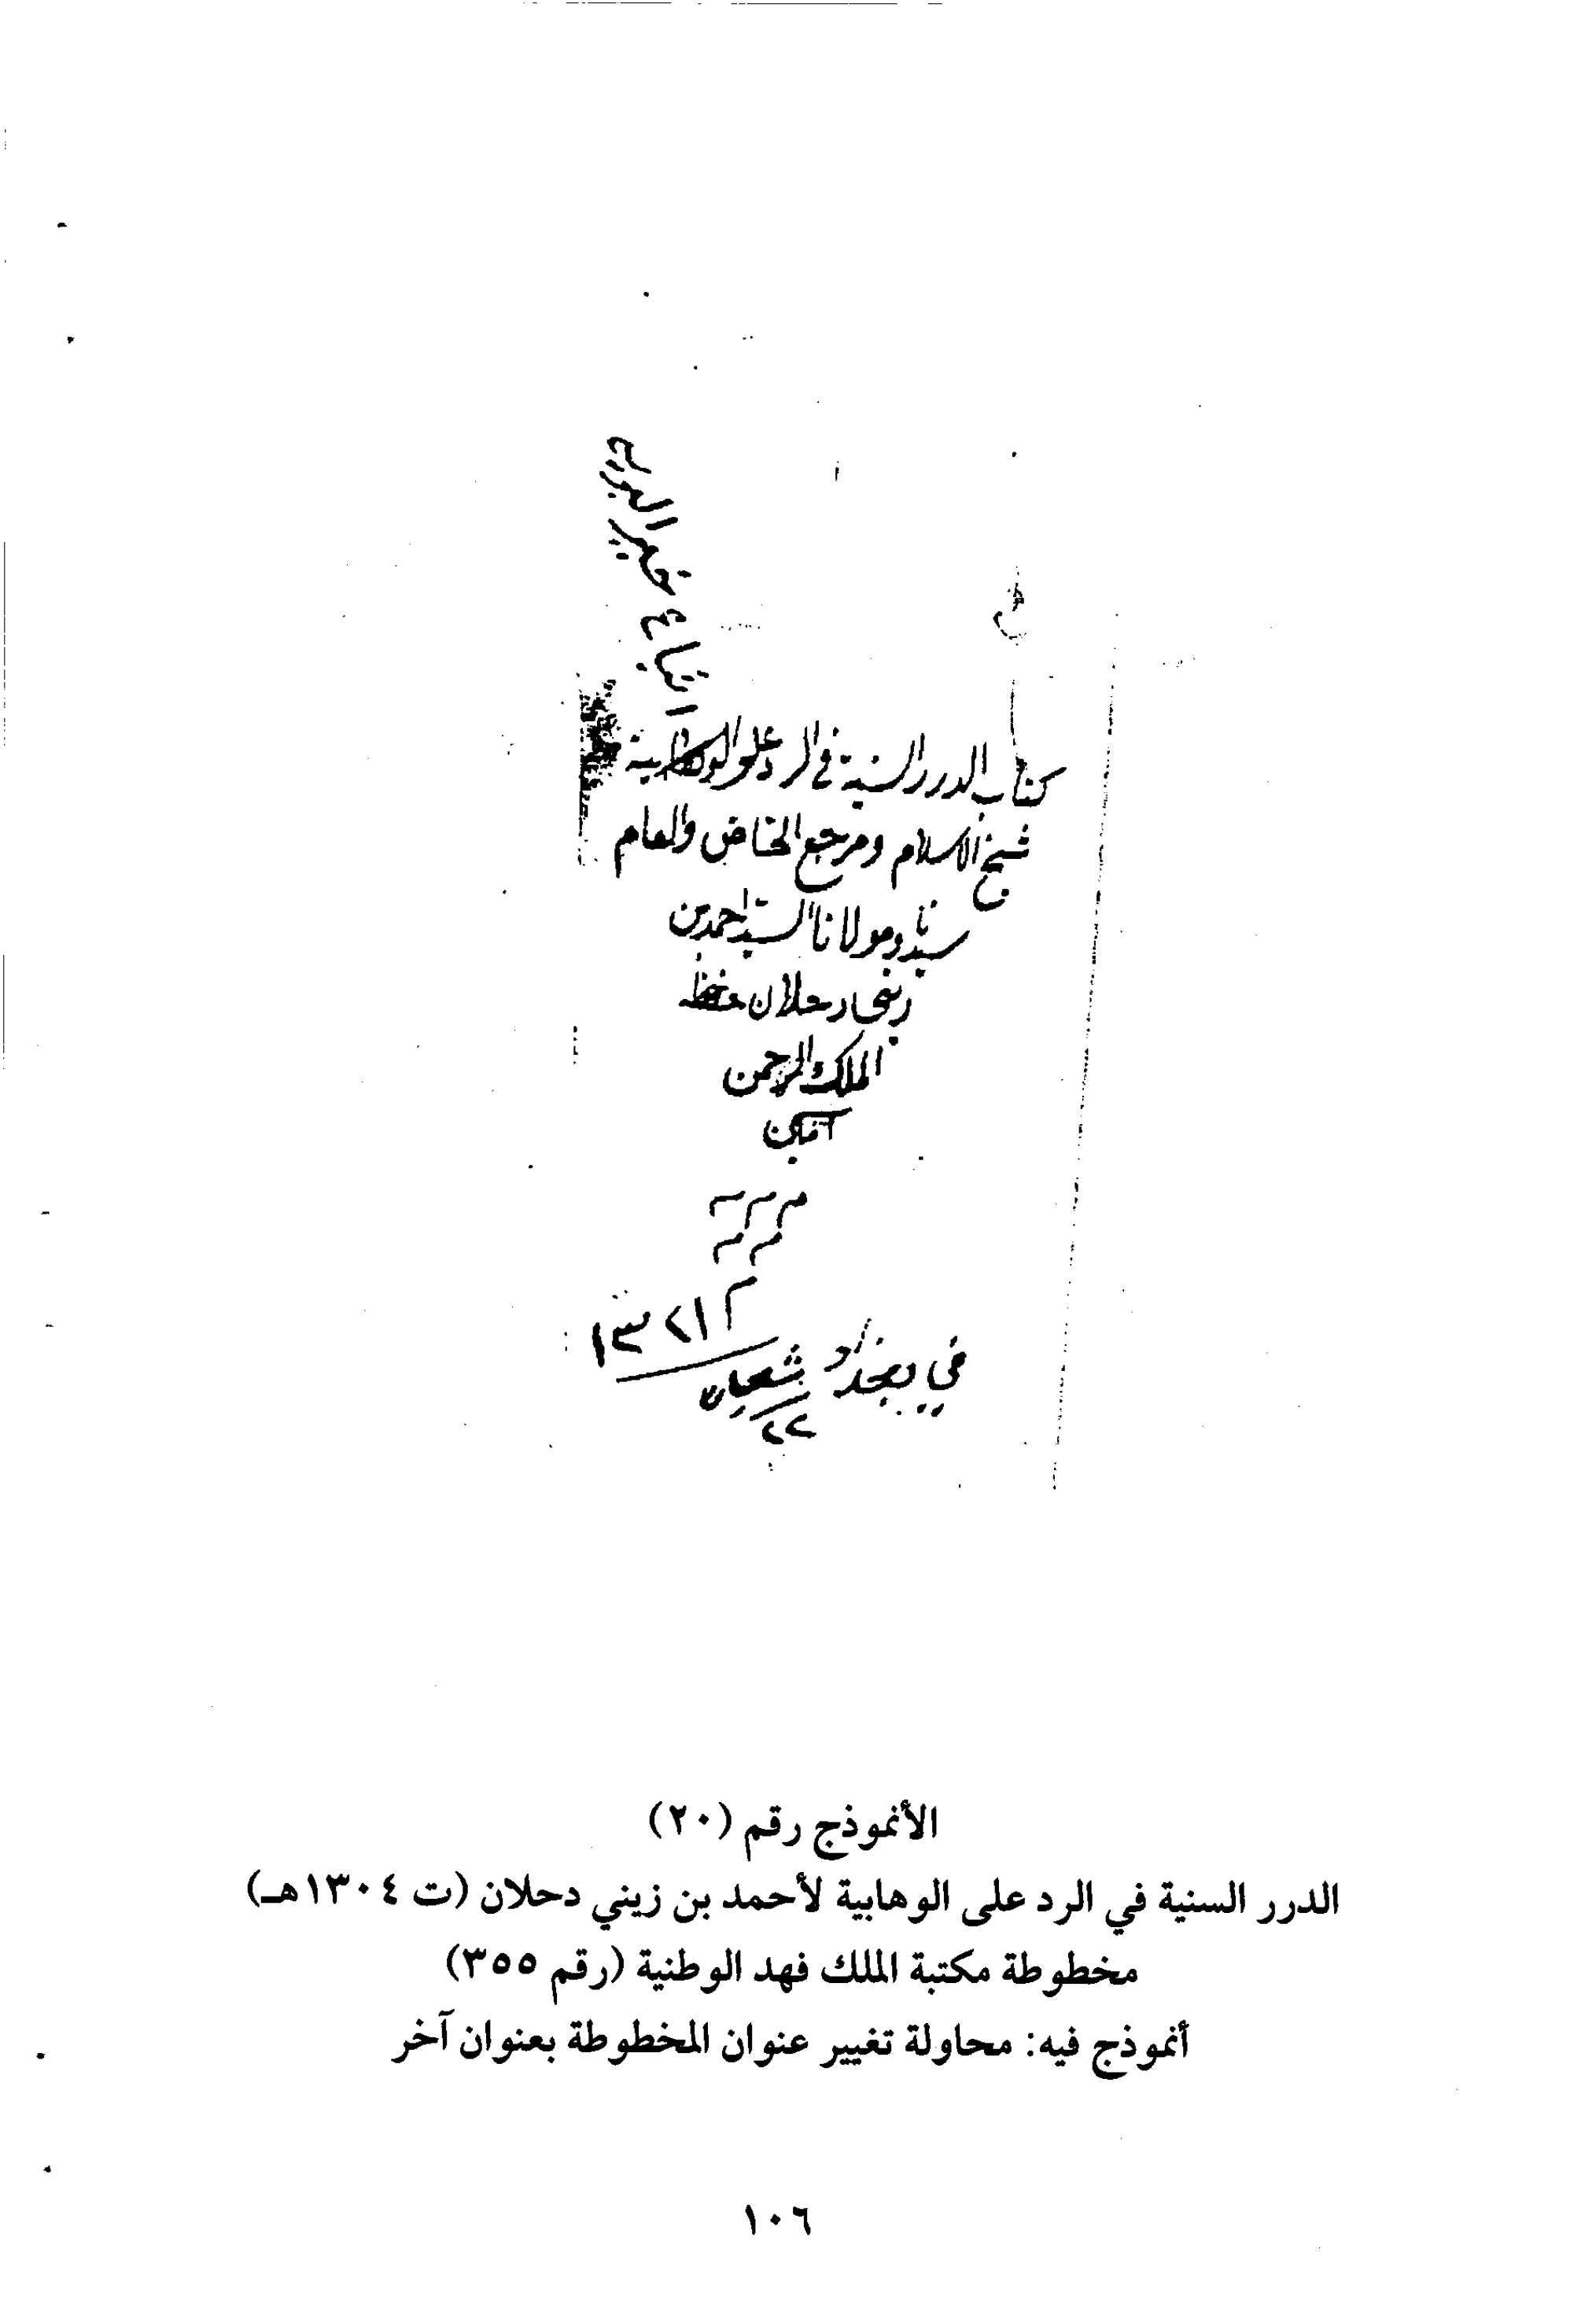 اتباع خير البرية
كتاب الدرر السنية في الرد على الوهابية
شيخ الاسلام ومرجع الخاص والعام
سيدنا ومولانا السيد احمد بن
زيني دحلان حفظه
الملك الرحمن
آمين
م م م
م م
م
١٣٢١
في بغداد شعبان
٢٢
الأنموذج رقم (٢٠)
الدرر السنية في الرد على الوهابية لأحمد بن زيني دحلان (ت ١٣٠٤هـ)
مخطوطة مكتبة الملك فهد الوطنية (رقم ٣٥٥)
أنموذج فيه: محاولة تغيير عنوان المخطوطة بعنوان آخر
١٠٦